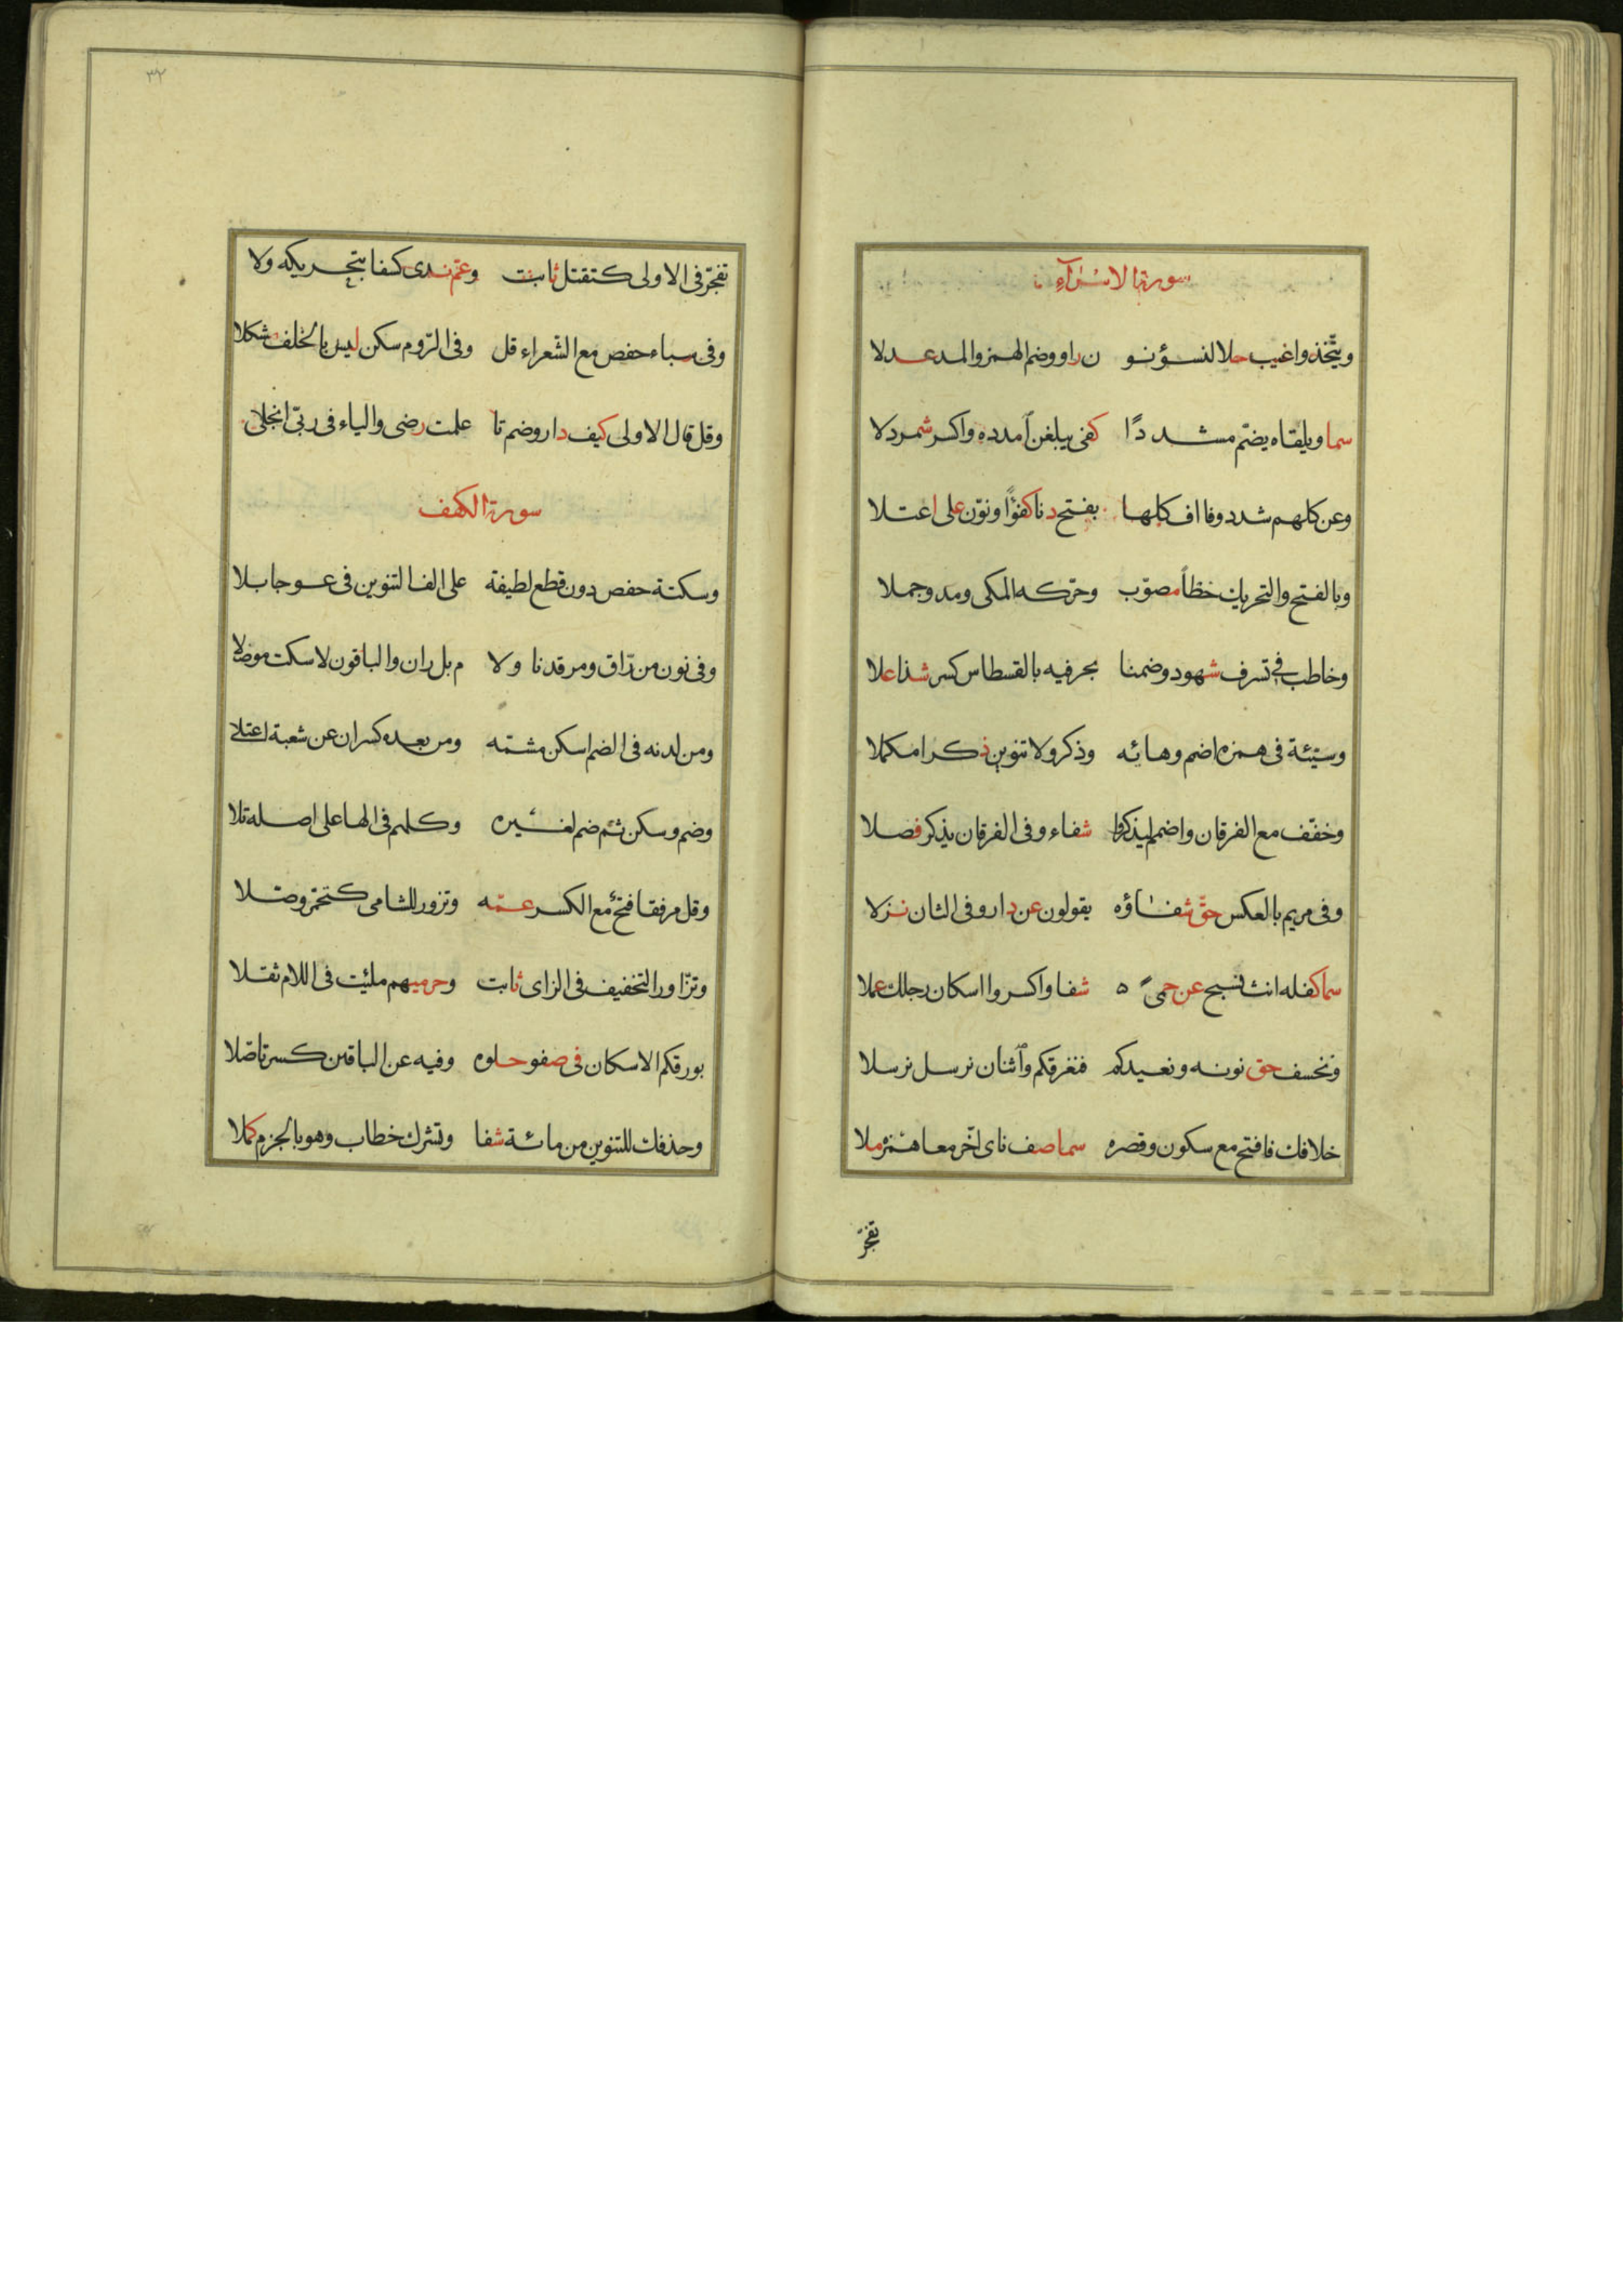 سورة الاسراء
ويتخذوا غيب حلا لنسؤنو ن راو وضم الهمز والمد عدلا
سما ويلقاه يضمّ مشددًا كفى يبلغن امدده واكسر شمردلا
وعن كلهم شدد وفا اف كلها بفتح دنا كفؤًا ونوّن على اعتلا
وبالفتح والتحريك خطأ مصوّب وحرّكه المكى ومد وجملا
وخاطب في تسرف شهود وضمنا بحرفيه بالقسطاس كسر شذا علا
وسيّئة فى همزه اضم وهائه وذكر ولا تنوين ذكرا مكملا
وخفّف مع الفرقان واضمم ليذكروا شفاء وفى الفرقان يذكر فصلا
وفى مريم بالعكس حقّ شفاؤه يقولون عن دار وفى الثان نزلا
سما كفله انث تسبح عن حمىً ه شفا واكسروا اسكان رجلك عملا
ونخسف حق نونه ونعيدكم فنغرقكم واثنان نرسل نرسلا
خلافك فافتح مع سكون وقصره سما صف ناى اخّر معا همزه ملا
تفجّر
٣٢
تفجّر فى الاولى كتقتل ثابت وعمّ ندى كسفا بتحريكه ولا
وفى سباء حفص مع الشّعراء قل وفى الرّوم سكن ليس بالخلف مشكلا
وقل قال الاولى كيف دار وضم تا علمت رضى والياء فى ربّى انجلى
سورة الكهف
وسكتة حفص دون قطع لطيفة على الف التنوين فى عوجا بلا
وفى نون من رّاق ومرقدنا ولا م بل ران والباقون لا سكت موصلا
ومن لدنه فى الضم اسكن مشمّه ومن بعده كسران عن شعبة اعتلى
وضم وسكن ثم ضم لغيره وكلهم فى الها على اصله تلا
وقل مرفقا فتح مع الكسر عمّه وتزور للشامى كتحمرّ وصّلا
وتزّاور التخفيف فى الزاى ثابت وحرميهم ملئت فى اللام ثقلا
بورقكم الاسكان فى صفو حلوه وفيه عن الباقين كسر تاصّلا
وحذفك للتنوين من مائة شفا وتشرك خطاب وهو بالجزم كملا